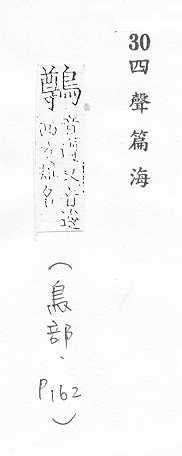 30四聲篇海
鷷
音遵又音逡
西方雉名
(鳥部、P162)